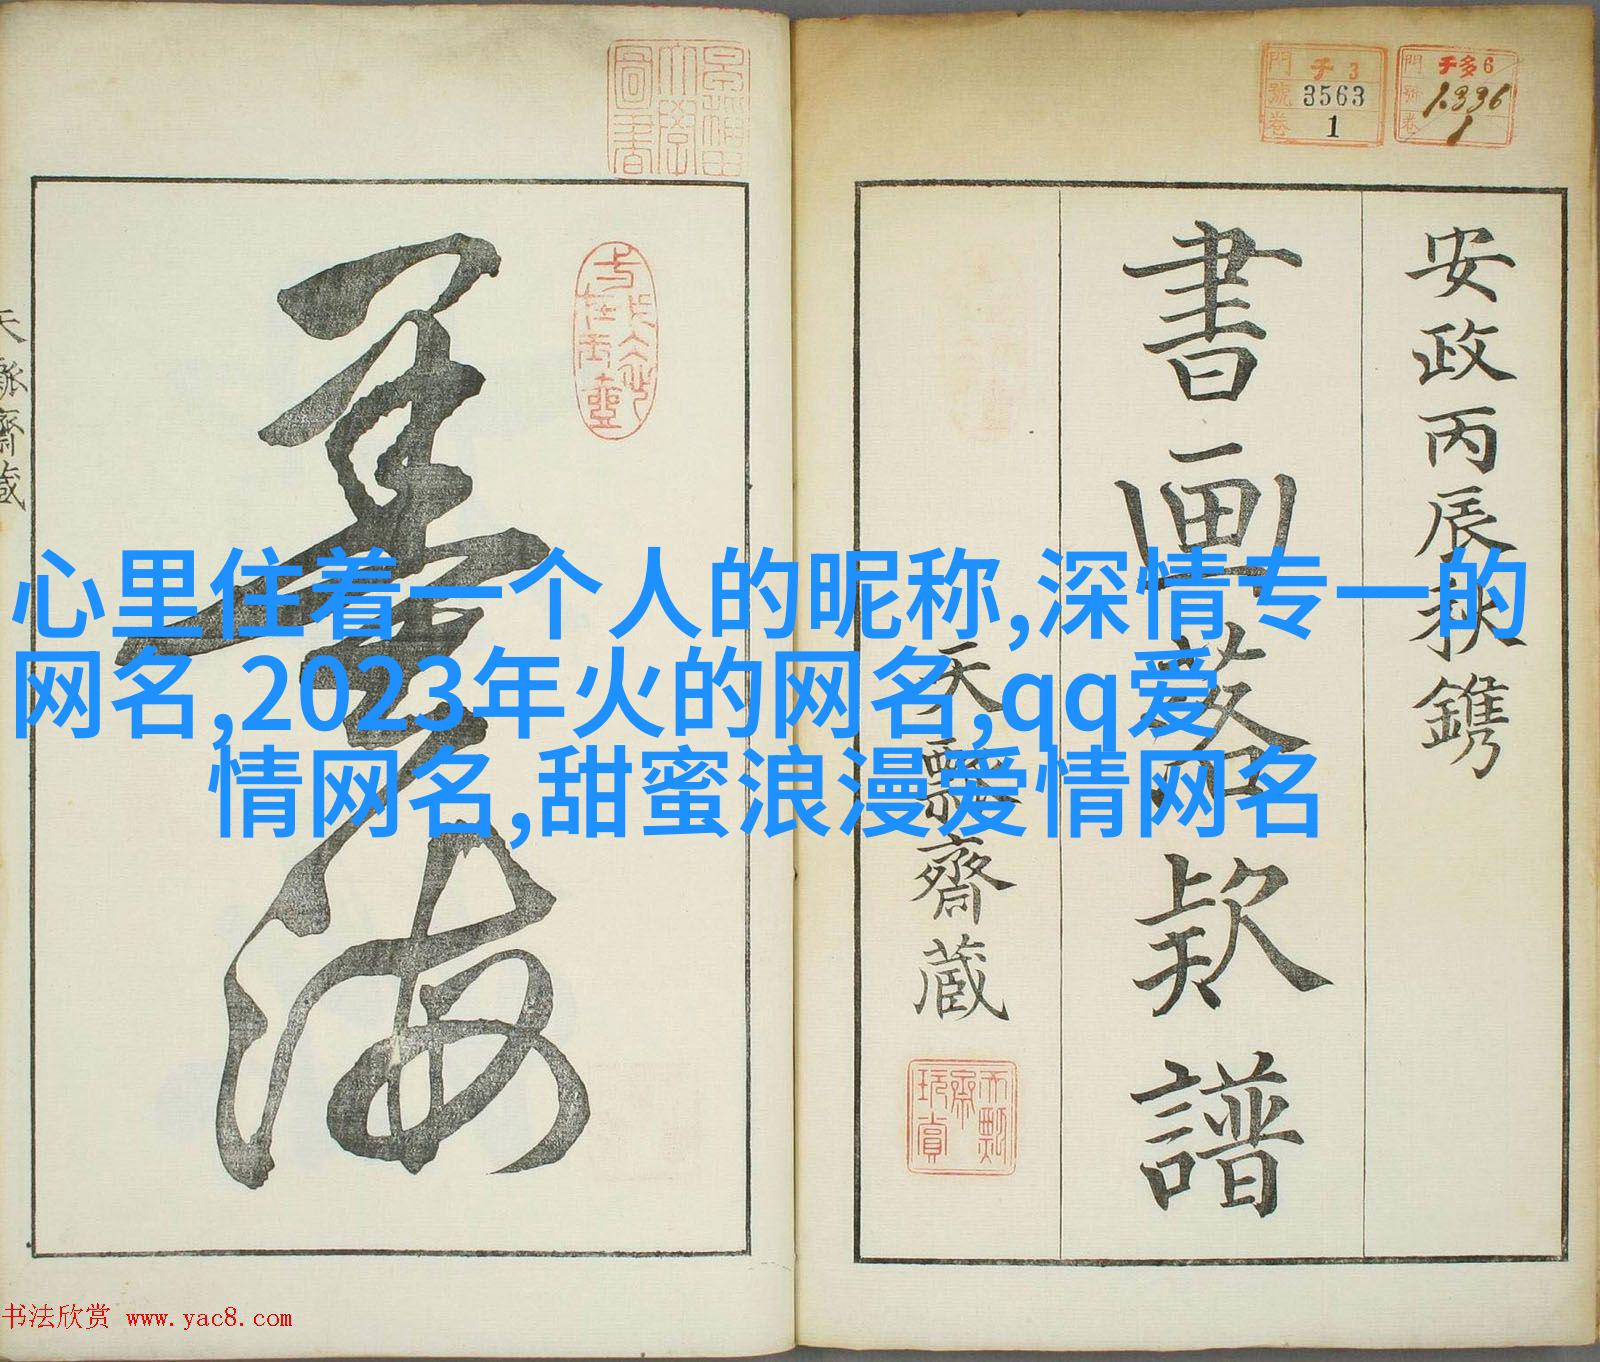 心里住着一个人的昵称,深情专一的
网名,2023年火的网名,qq爱
情网名,甜蜜浪漫爱情网名
門 チ 3
號 3563
卷 1
門 チ多6
號 1336
卷 1
安政丙辰秋鐫
書画落款譜
天瓢齋藏
天瓢齋玩賞
墨海
天瓢齋藏
书法欣赏 www.yac8.com